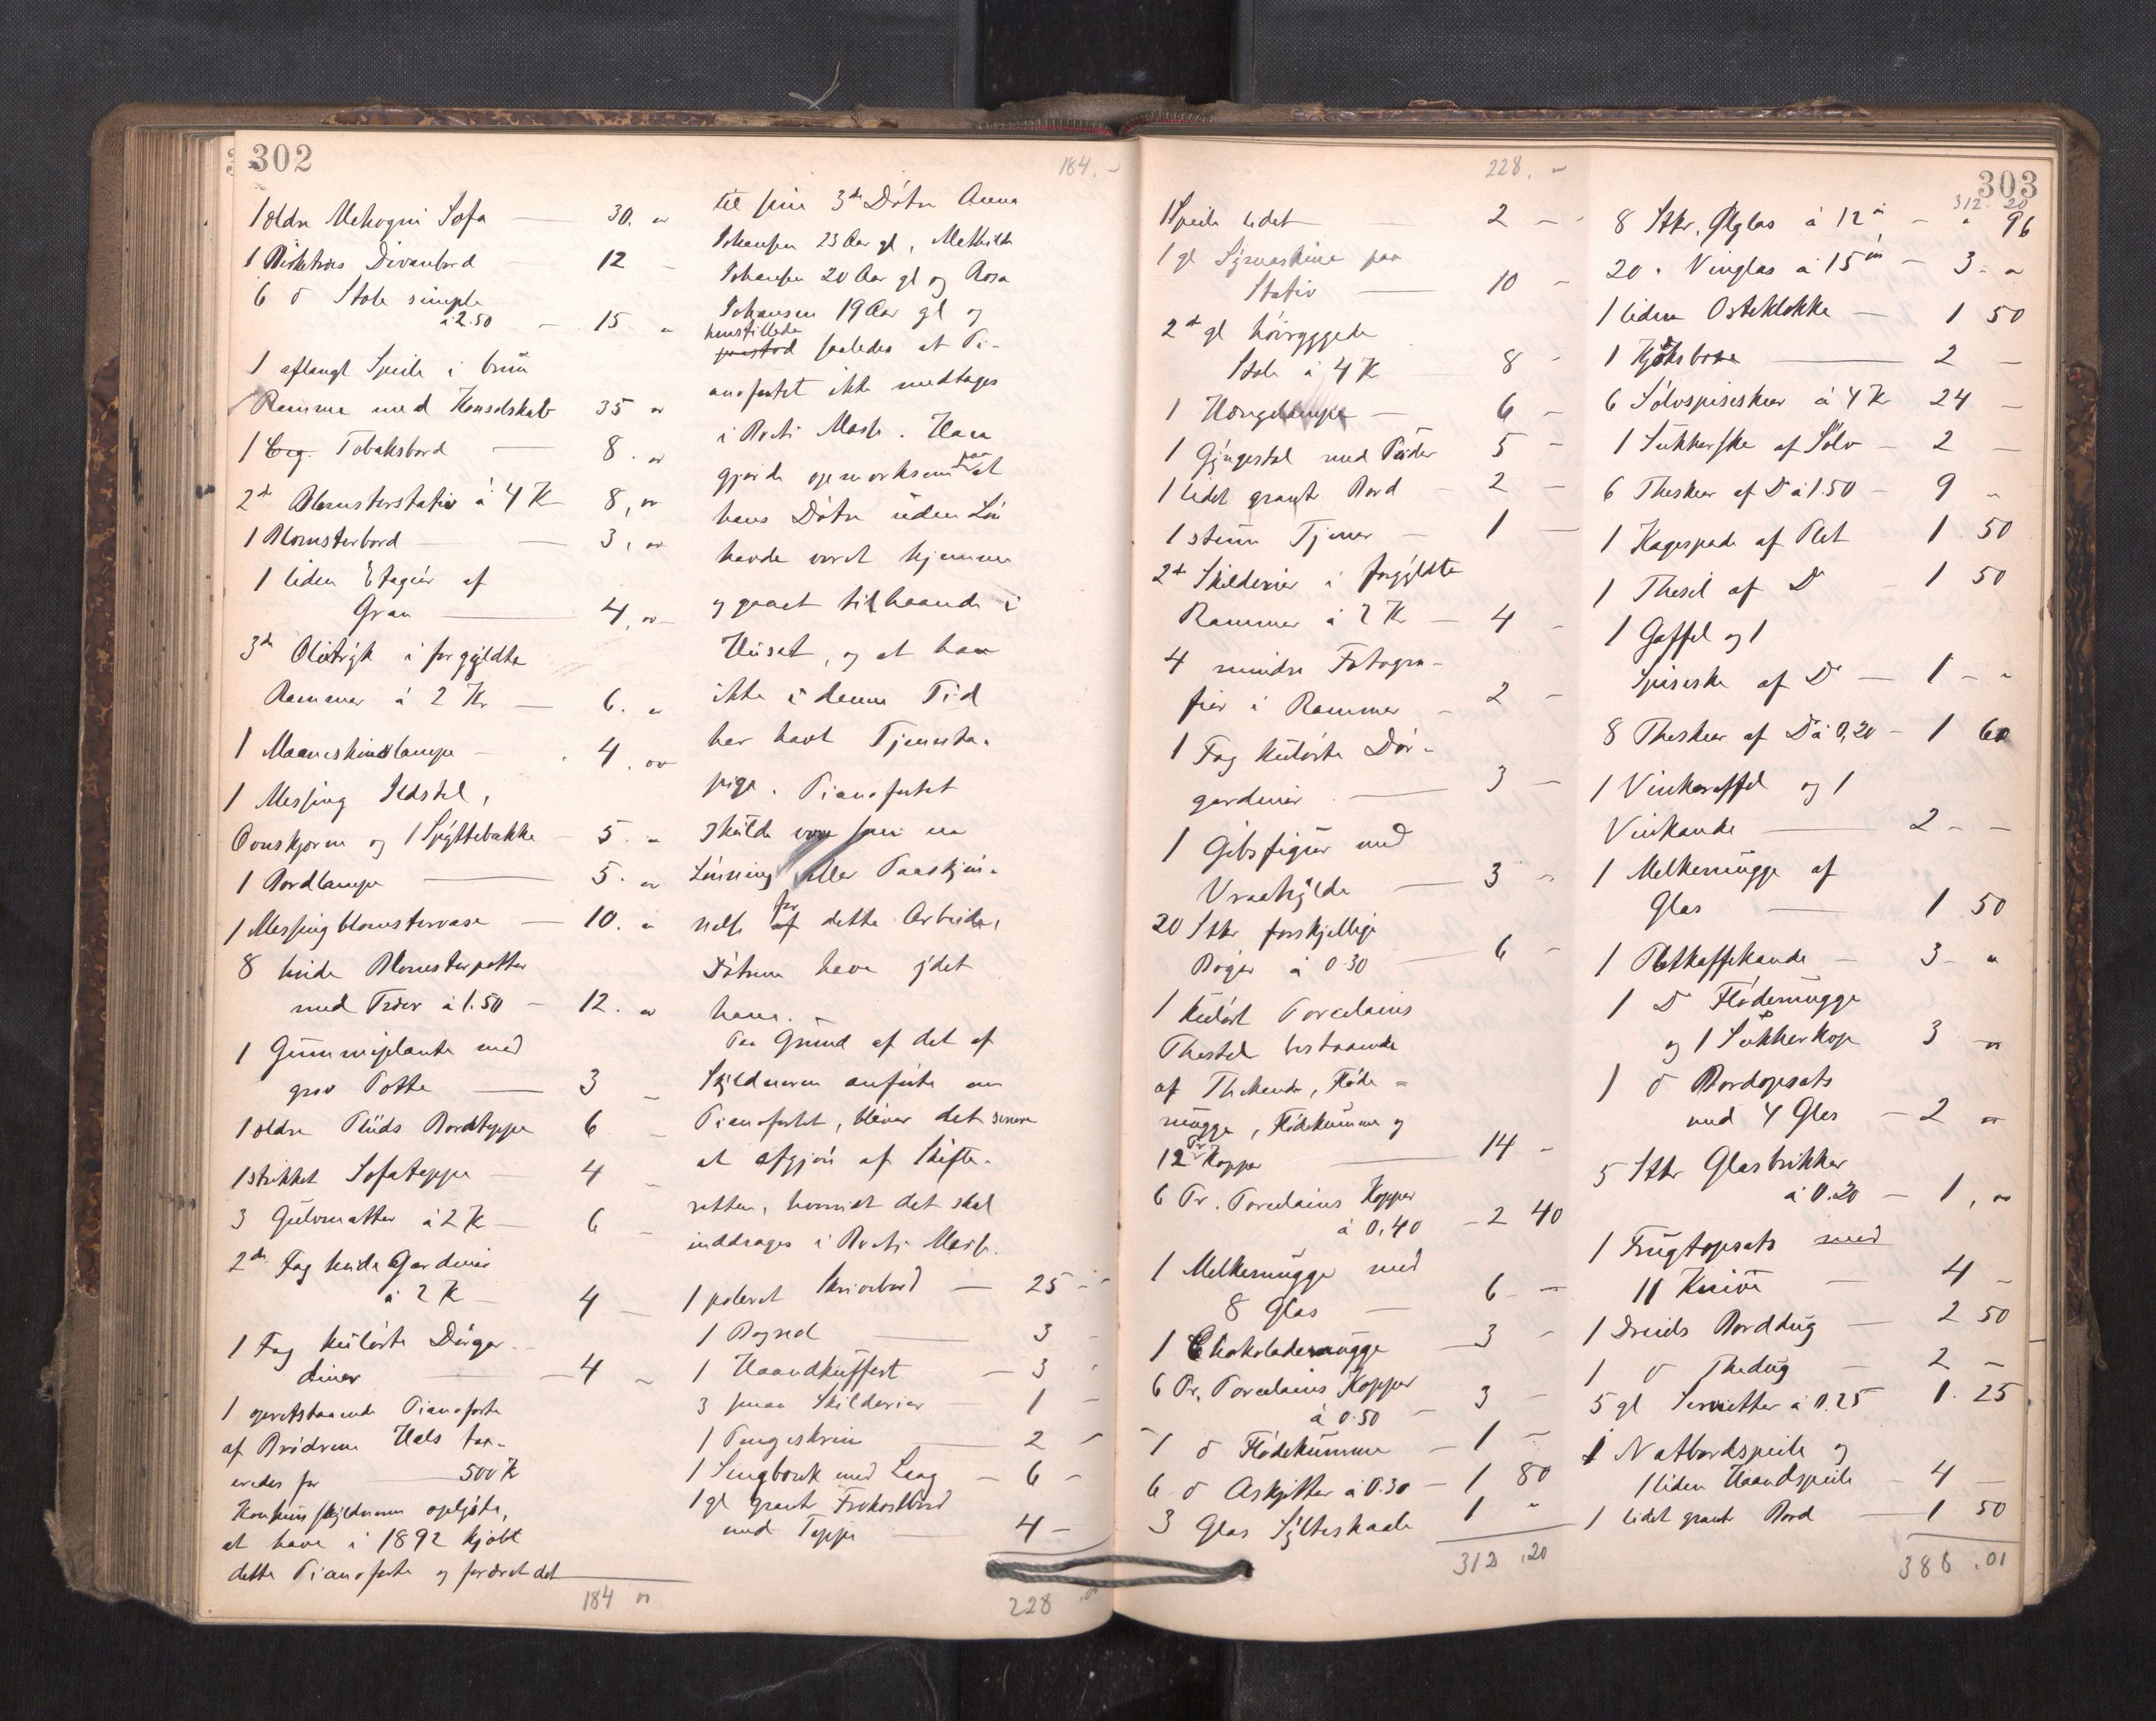 302
184. -
1 ældre Mahogni Sofa — 30. "
1 Birketræs Divanbord — 12 -
6 d° Stole simple
à 2.50 - 15 "
1 aflangt Speile i brun
Ramme med Konsolskab 35 "
1 Eg. Tobaksbord — 8. "
2de Blomsterstativ à 4 K 8, "
1 Blomsterbord — 3, "
1 liden Etagér af
Gran — 4, "
3de Olietryk i forgyldte
Rammer à 2 Kr — 6. "
1 Maaneskinslampe - 4. "
1 Messing Ildstel,
Ovnskjerm og 1 Spyttebakke - 5. "
1 Bordlampe — 5. "
1 Messingblomstervase — 10. "
8 hvide Blomsterpotter
med Træer à 1.50 - 12. "
1 Gummiplante med
grøn Potte — 3 -
1 ældre Plüds Bordteppe 6 -
1 strikket Sofateppe - 4 -
3 Gulvmatter à 2 K - 6 -
2de Fag hvide Gardiner
à 2 K - 4 -
1 Fag kulørte Dørgar-
diner — 4 -
1 opretstaaende Pianoforte
af Brødrene Hals tax-
eredes for — 500 K
Konkursskyldneren oplyste,
at have i 1892 kjøbt
dette Pianoforte og foræret det
184 "
til sine 3de Døtre Anna
Johansen 23 Aar gl, Mathilde
Johansen 20 Aar gl og Rosa
Johansen 19 Aar gl og
henstillede
paastod saaledes at Pi-
anofortet ikke medtages
i Boets Masse. Han
gjorde opmærksom paa at
hans Døtre uden Løn
havde været hjemme
og gaaet tilhaande i
Huset, og at han
ikke i denne Tid
har havt Tjeneste-
pige. Pianofortet
skulde være som en
Lønning eller Paaskjøn-
nelse af for dette Arbeide,
Døtrene have ydet
ham. -
Paa Grund af det af
Skyldneren anførte om
Pianofortet, bliver det senere
at afgjøre af Skifte-
retten, hvorvidt det skal
inddrages i Boets Masse.
1 poleret Skrivebord — 25 - -
1 Bogreol — 3 -
1 Haandkuffert — 3 -
3 smaa Skilderier — 1 -
1 Pengeskrin 2 -
1 Sengbænk med Laag - 6 -
1 gl grant Frokostbord
med Teppe — 4 -
228
228. "
1 Speile lidet — 2 - -
1 gl Symaskine paa
Stativ — 10 -
2de gl høiryggede
Stole à 4 K 8 -
1 Hængelampe — 6 -
1 Gyngestol med Puder 5 -
1 lidet grant Bord - 2 -
1 stum Tjener - 1 -
2de Skilderier i forgyldte
Rammer à 2 K — 4 -
4 mindre Fotogra-
fier i Rammer - 2 -
1 Fag kulørte Dør-
gardiner — 3 -
1 Gibsfigur med
Vraahylde — 3 -
20 Stkr forskjellige
Bøger à 0.30 — 6 -
1 kulørt Porcelains
Thestel bestaaende
af Thekande, Fløde-
mugge, Flødekumme og
12 Pr Kopper — 14 -
6 Pr. Porcelains Kopper
à 0,40 - 2 40
1 Melkemugge med
8 Glas — 6 -
1 Chokolademugge — 3 -
6 Pr. Porcelains Kopper
à 0.50 - 3 -
1 d° Flødekumme - 1 -
6 d° Askjetter à 0.30 - 1 80
3 Glas Sylteskaale 1 "
312 .20
303
312 20
8 Stkr. Ølglas à 12 ø - " 96
20 " Vinglas à 15 ø - 3 - "
1 liden Osteklokke — 1 50
1 Kjøksbox — 2 -
6 Sølvspiseskeer à 4 K 24 -
1 Sukkerske af Sølv - 2 -
6 Theskeer af D° à 1.50 - 9 "
1 Kagespade af Plet 1 50
1 Thesil af D° - 1 50
1 Gaffel og 1
Spiseske af D° — 1 - "
8 Theskeer af D° à 0,20 - 1 60
1 Vinkaraffel og 1
Vinkande — 2 - -
1 Melkemugge af
Glas — 1 50
1 Pletkaffekande - 3 - "
1 D° Flødemugge
og 1 Sukkerkop 3 "
1 d° Bordopsats
med 4 Glas - 2 "
5 Stkr Glasbrikker
à 0.20 - 1, "
1 Frugtopsats med
11 Knive — 4 -
1 Dreiels Borddug — 2 50
1 d° Thedug - 2 -
5 gl Servietter à 0.25 1. 25
1 Natbordspeile og
1 liden Haandspeile - 4 -
1 lidet grant Bord — 1 50
388 .01